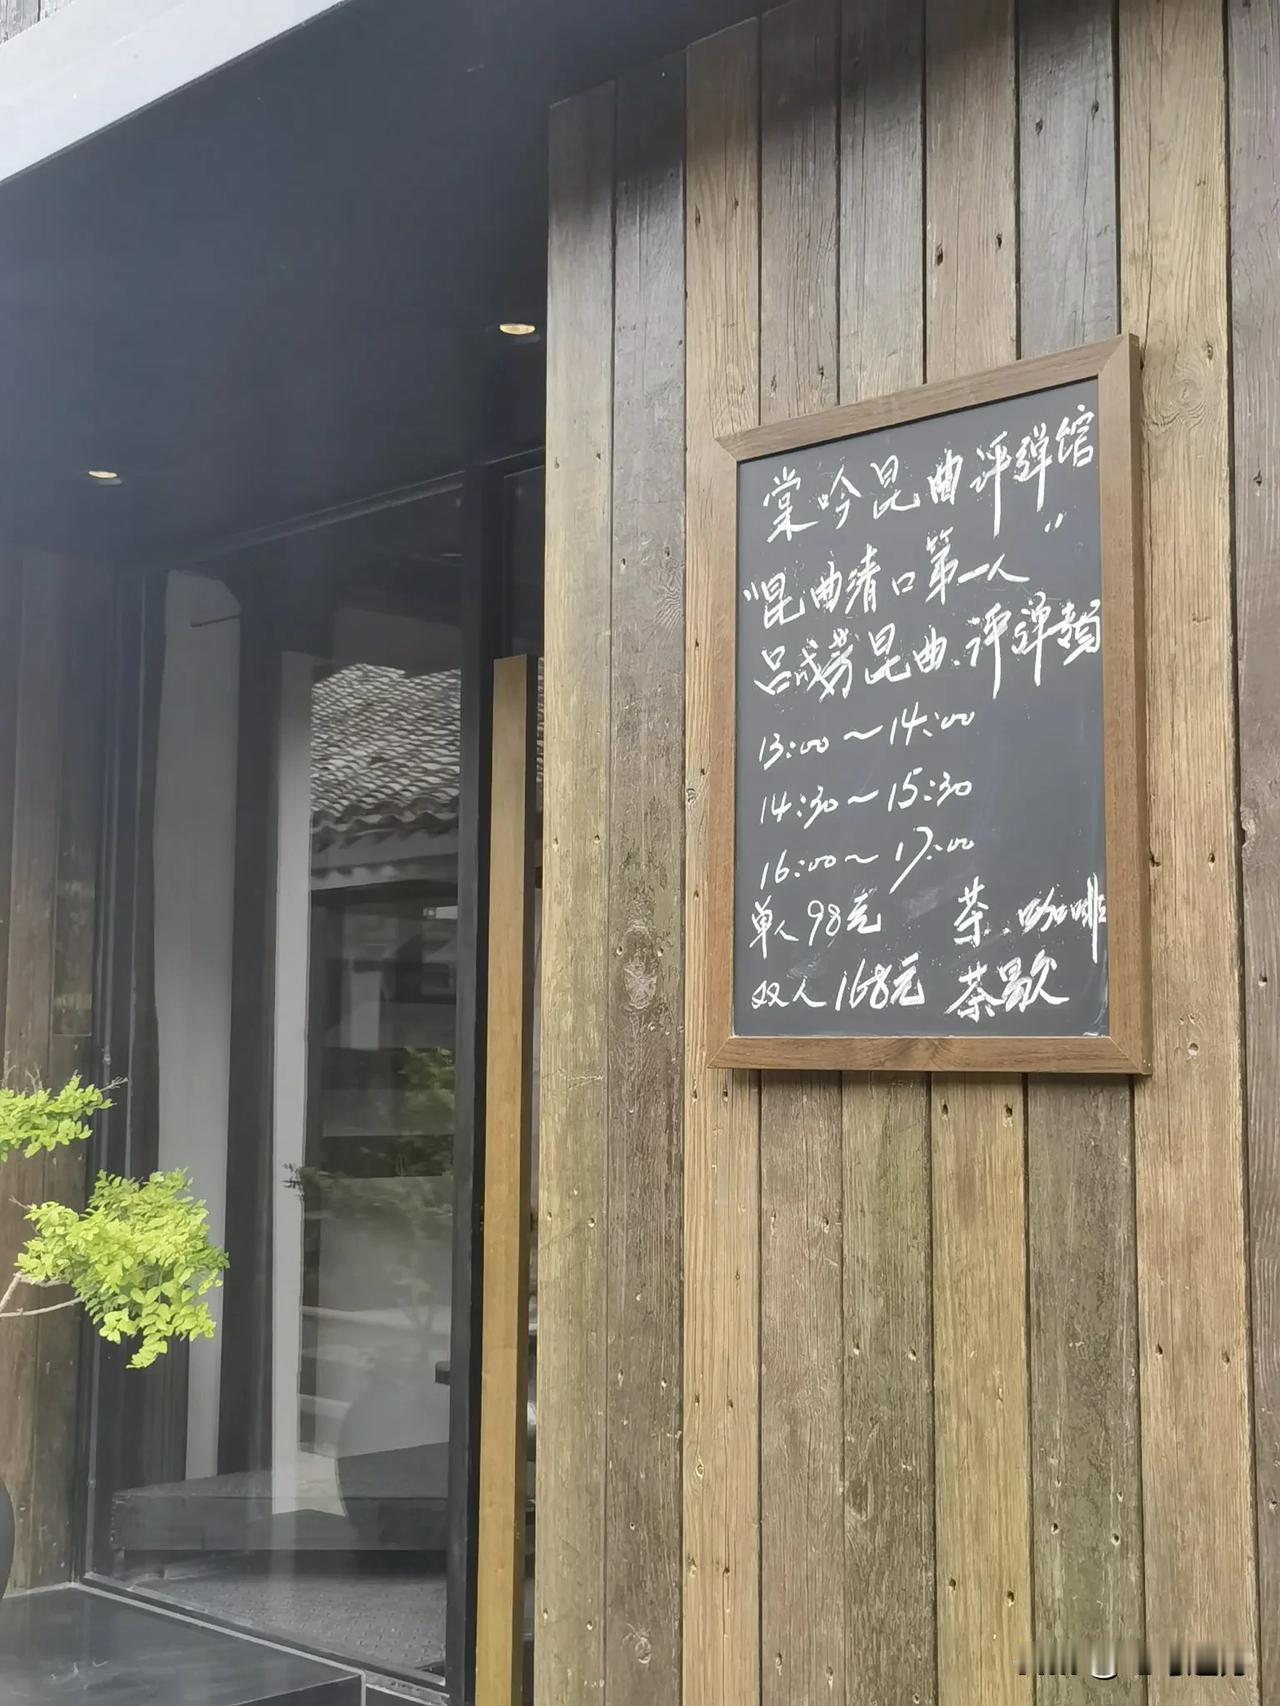 棠吟昆曲评弹馆
"昆曲清口第一人"
吕成芳昆曲.评弹
13:00～14:00
14:30～15:30
16:00～17:00
单人98元 茶.咖啡
双人168元 茶歇